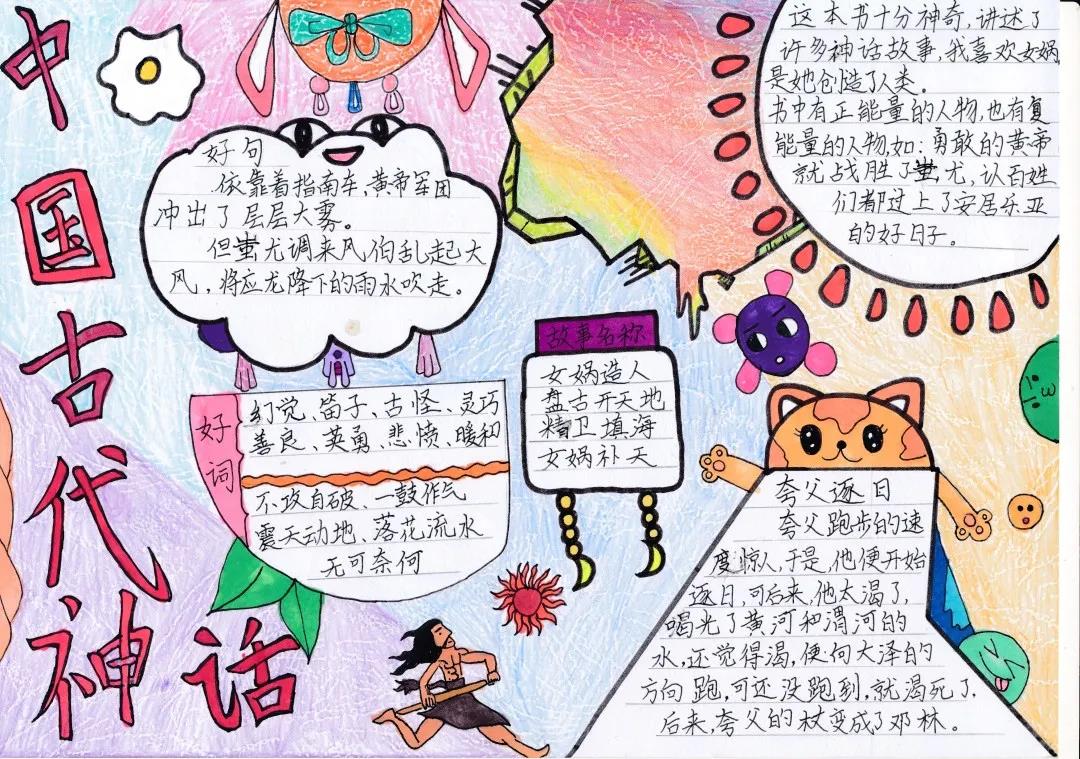 中国古代神话
好句
依靠着指南车,黄帝军团
冲出了层层大雾。
但蚩尤调来风伯乱起大
风,将应龙降下的雨水吹走。
这本书十分神奇,讲述了
许多神话故事,我喜欢女娲,
是她创造了人类。
书中有正能量的人物,也有复
能量的人物,如:勇敢的黄帝
就战胜了蚩尤,让百姓
们都过上了安居乐亚
的好日子。
好词
幻觉、笛子、古怪、灵巧
善良、英勇、悲愤、暖和
不攻自破、一鼓作气
震天动地、落花流水
无可奈何
故事名称
女娲造人
盘古开天地
精卫填海
女娲补天
夸父逐日
夸父跑步的速
度惊人,于是,他便开始
逐日,可后来,他太渴了,
喝光了黄河和渭河的
水,还觉得渴,便向大泽的
方向跑,可还没跑到,就渴死了.
后来,夸父的杖变成了邓林。